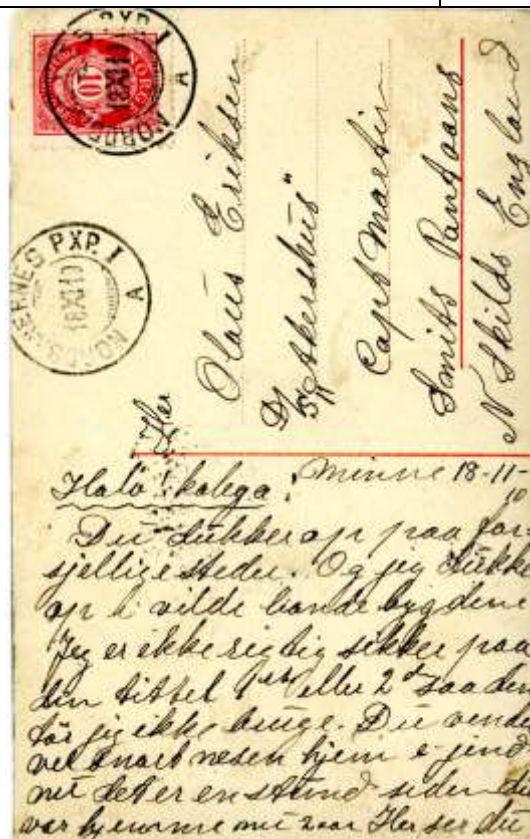 NORGE
10
NORDS.HERNES PXP. I
18 XI 10
A
NORDS.HERNES PXP. I
18 XI 10
A
Her
Olaus Eriksen
D/S "Akershus"
Capt Martin
Smits Pontoons
N Skilds England
Halo! kolega!
Minne 18-11-10
Du dukker op paa for-
sjellige steder. Og jeg dukke
op i vilde lande bygdene
Jeg er ikke rigtig sikker paa
din tittel 1st eller 2d saa den
tör jeg ikke bruge. Du vende
vel snart nesen hjem e-jend
nu det er en stund siden du
var hjemme nu 2 aar Her ser du